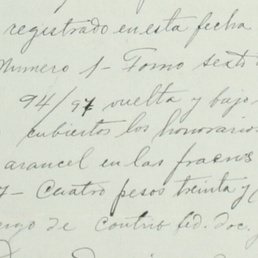 registrado en esta fecha
Numero 1- Tomo sexto
94/97 vuelta y bajo
cubiertos los honorarios
arancel en las fracns
7- Cuatro pesos treinta y
de contrib fed. doc.